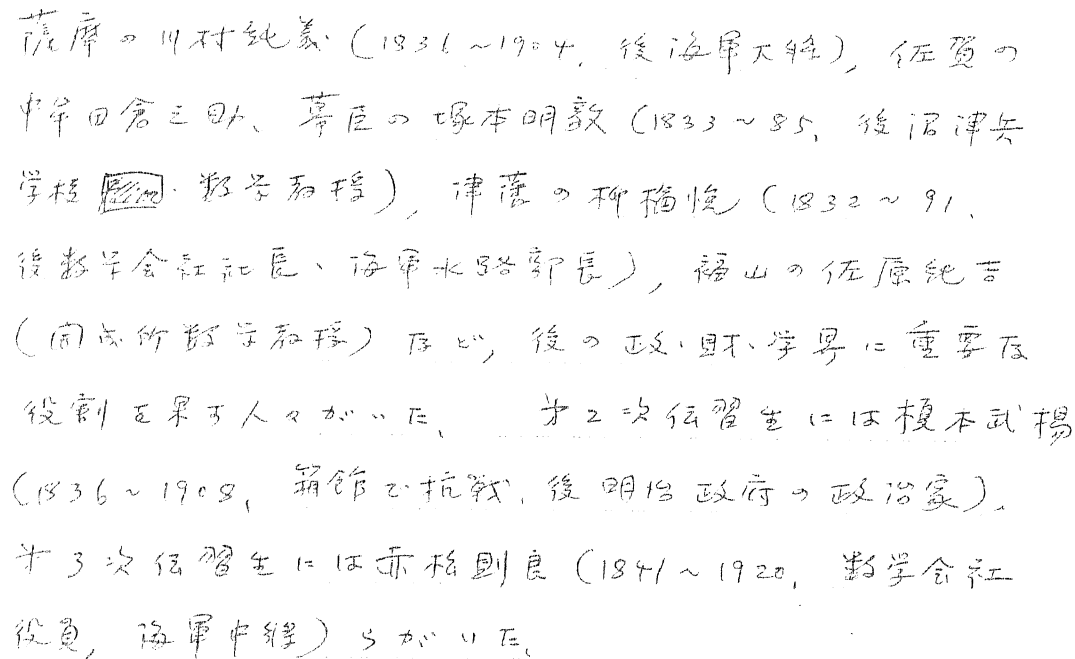 薩摩の川村純義(1836~1904, 後海軍大将), 佐賀の
中牟田倉之助、幕臣の塚本明毅(1833~85, 後沼津兵
学校 ・数学教授), 津藩の柳楢悦(1832~91,
後数学会社社長、海軍水路部長), 福山の佐原純吉
(開成所数学教授)など, 後の政・財・学界に重要な
役割を果す人々がいた、 第2次伝習生には榎本武揚
(1836~1908, 箱館で抗戦, 後明治政府の政治家)、
第3次伝習生には赤松則良(1841~1920, 数学会社
役員, 海軍中将)らがいた、